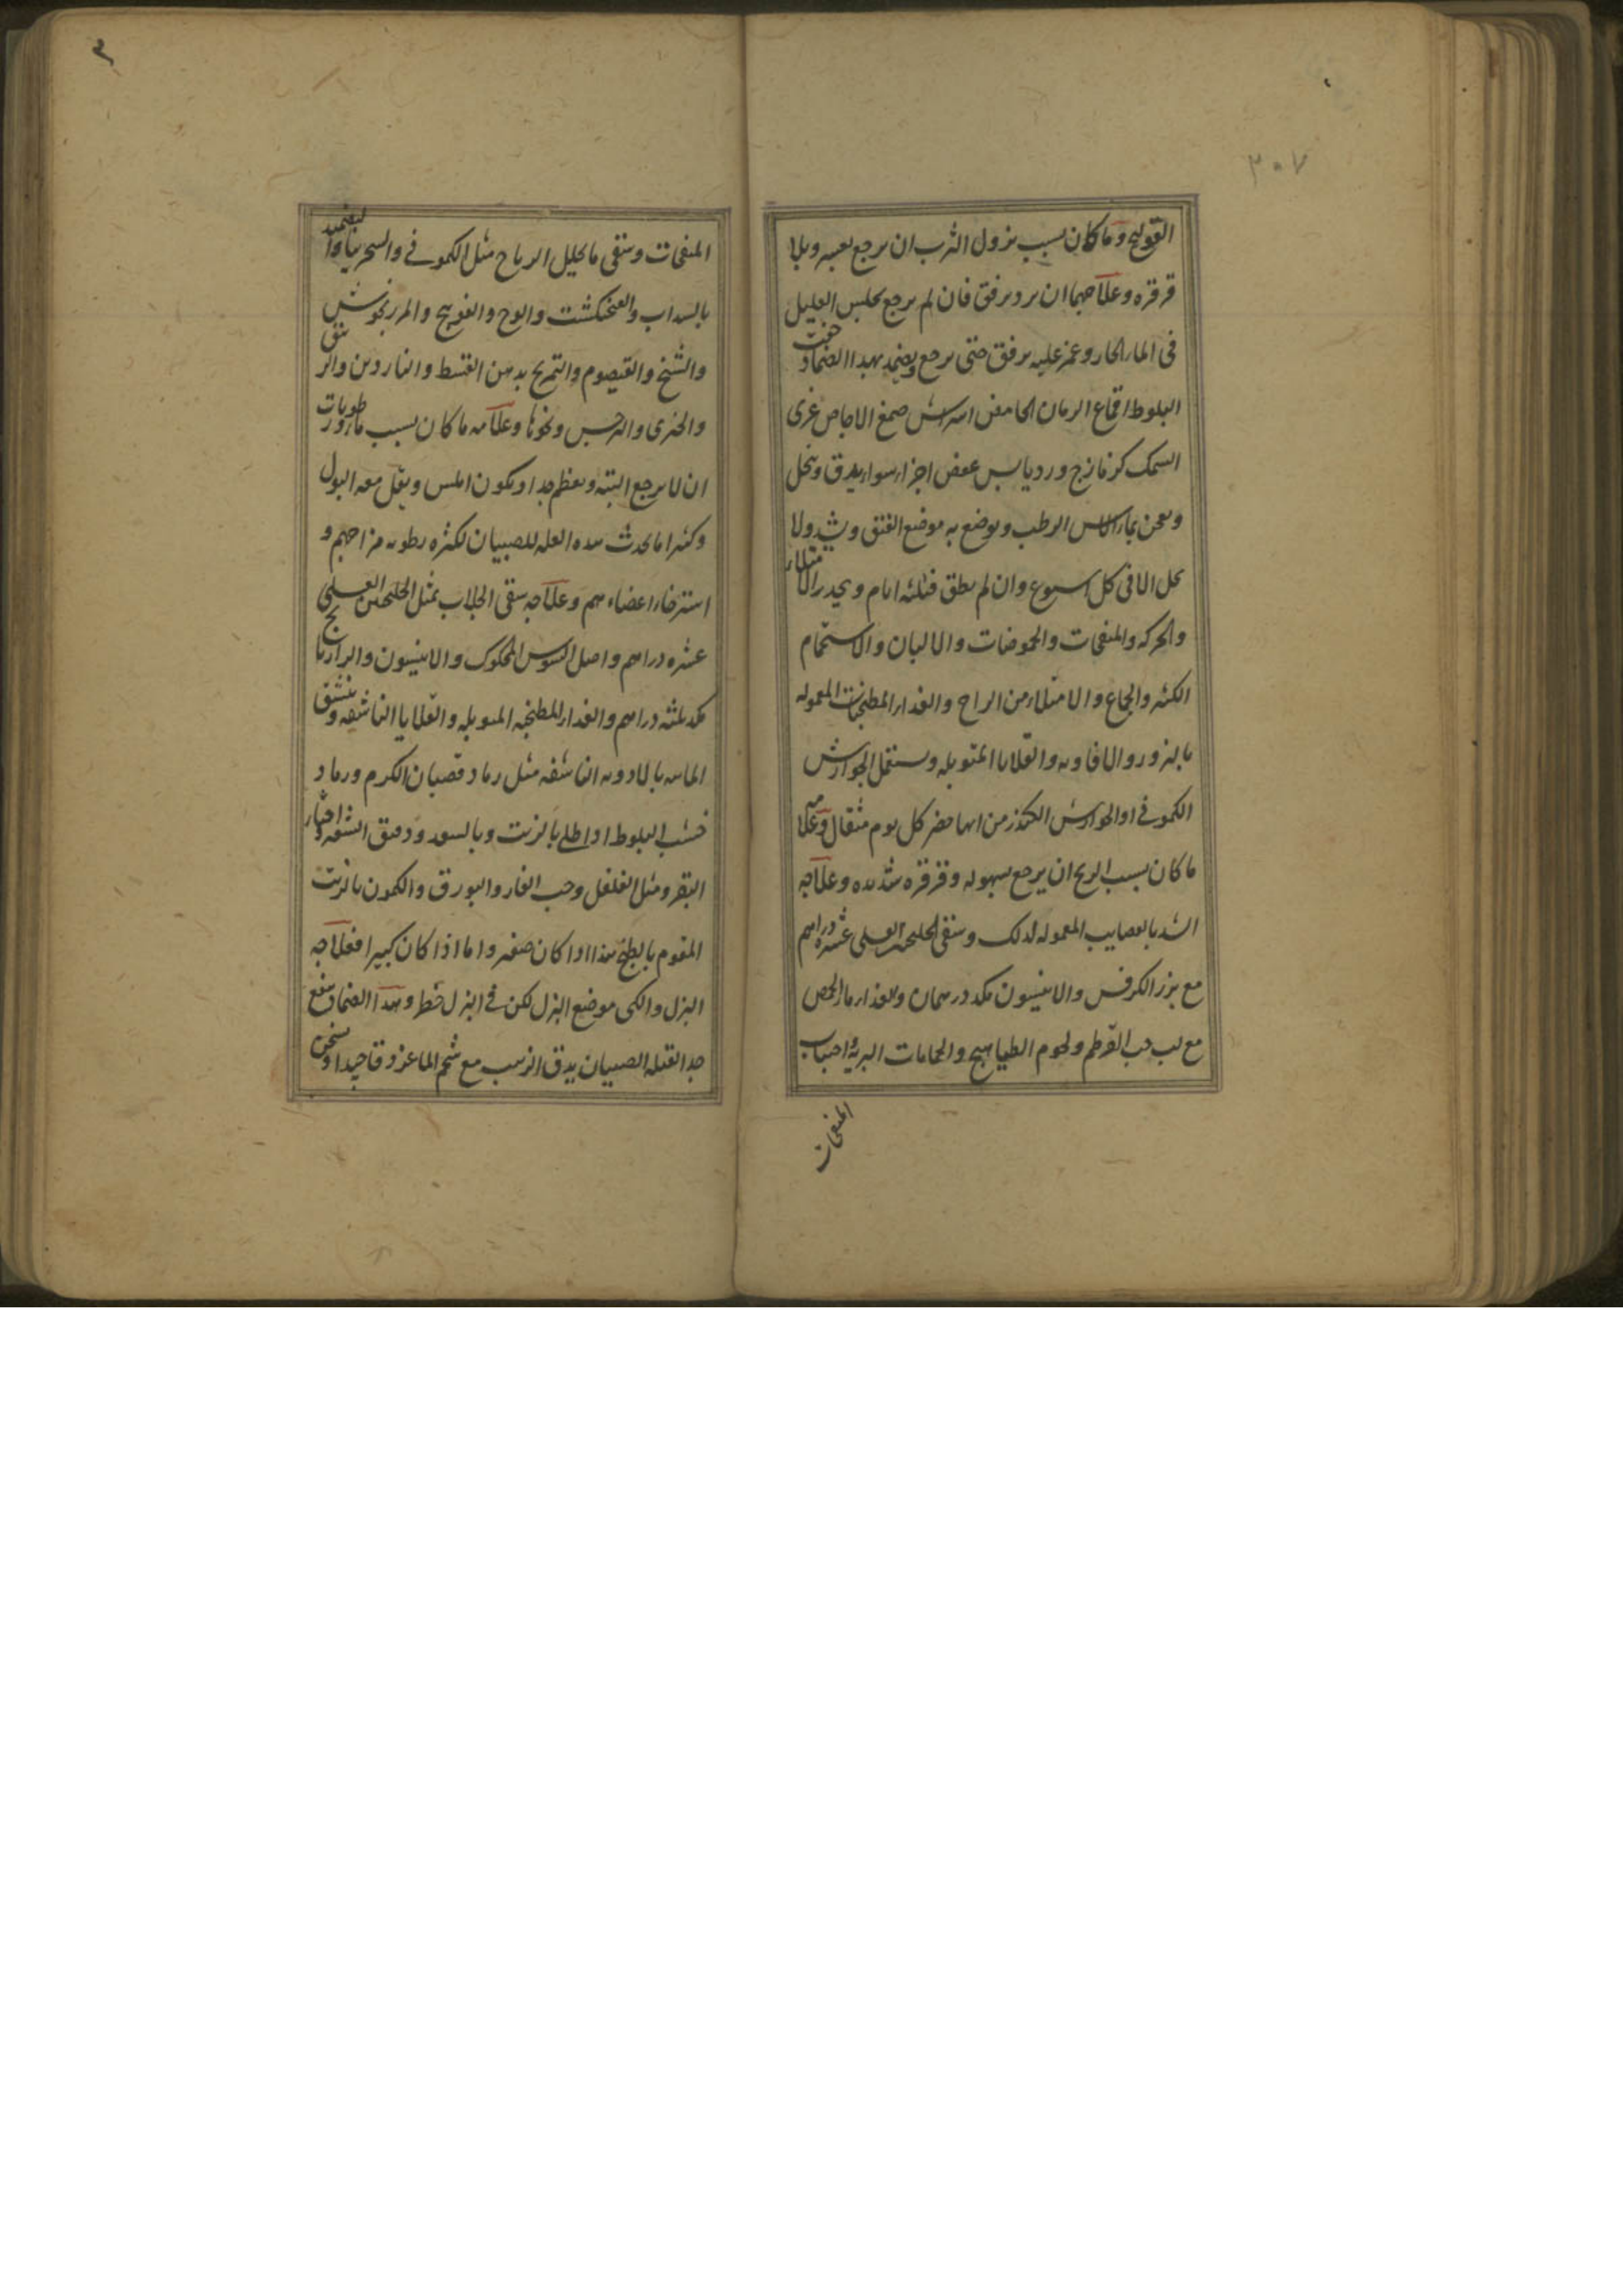 ٣٠٧
القولنج وما كان بسبب نزول الثرب ان يرجع بعسر وبلا
قرقره وعلاجهما ان يرد برفق فان لم يرجع يجلس العليل
فى الماء الحار وغمز عليه برفق حتى يرجع ويضمد بهذا الضماد جفت
البلوط اقماع الرمان الحامض اسراش صمغ الاجاص غرى
السمك كزمازج ورد يابس عفص اجزاء سواء يدق وينخل
ويعجن بماء الاس الرطب ويوضع به موضع الفتق ويشد ولا
يحل الا فى كل اسبوع وان لم يطق فثلثه ايام ويحذر الامتلاء
والحركه والمنفخات والحموضات والالبان والاستحمام
الكثير والجماع والامتلاء من الراح والغذاء المطجنات المعموله
بالبزور والافاويه والقلايا المتوبله ويستعمل الجوارش
الكمونى او الجوارش الكندر من ايها حضر كل يوم مثقال وعلامه
ما كان بسبب الريح ان يرجع بسهوله وقرقره شديده وعلاجه
الشد بالعصايب المعموله لذلك وسقى الجلنجبين العسلى عشره دراهم
مع بزر الكرفس والانيسون مكد درهمان والغذاء ماء الحمص
مع لب حب القرطم ولحوم الطياهيج والحمامات البريه واجتناب
المنفخات
المنفخات وسقى ما يحلل الرياح مثل الكمونى والسجرينا والتضميد
بالسداب والفنجنكشت والوج والفوتنج والمرزنجوش
والشيح والقيصوم والتمريخ بدهن القسط والناردين والزنبق
والخيرى والنرجس ونحوها وعلامه ما كان بسبب مائ ورطوبات
ان لا يرجع البته ويعظم جدا ويكون املس ويقل معه البول
وكثيرا ما يحدث هذه العله للصبيان لكثره رطوبه مزاجهم و
استرخاء اعضاءهم وعلاجه سقى الجلاب بمثل الجلنجبين العسلى
عشره دراهم واصل السوس المحكوك والانيسون والرازيانج
مكد ثلثه دراهم والغذاء المطجنه المتوبله والقلايا الناشفه وينشق
المائيه بالادويه الناشفه مثل رماد قضبان الكرم ورماد
خشب البلوط اذا طلى بالزيت وبالسعد ودقيق الشعير واخثار
البقر ومثل الفلفل وحب الغار والبورق والكمون بالزيت
المقوم بالطبخ هذا اذا كان صغيرا واما اذا كان كبيرا فعلاجه
البزل والكى موضع البزل لكن فى البزل خطر وهذا الضماد ينفع
جدا لقيله الصبيان يدق الزبيب مع شحم الماعز دقا جيدا ويسخن